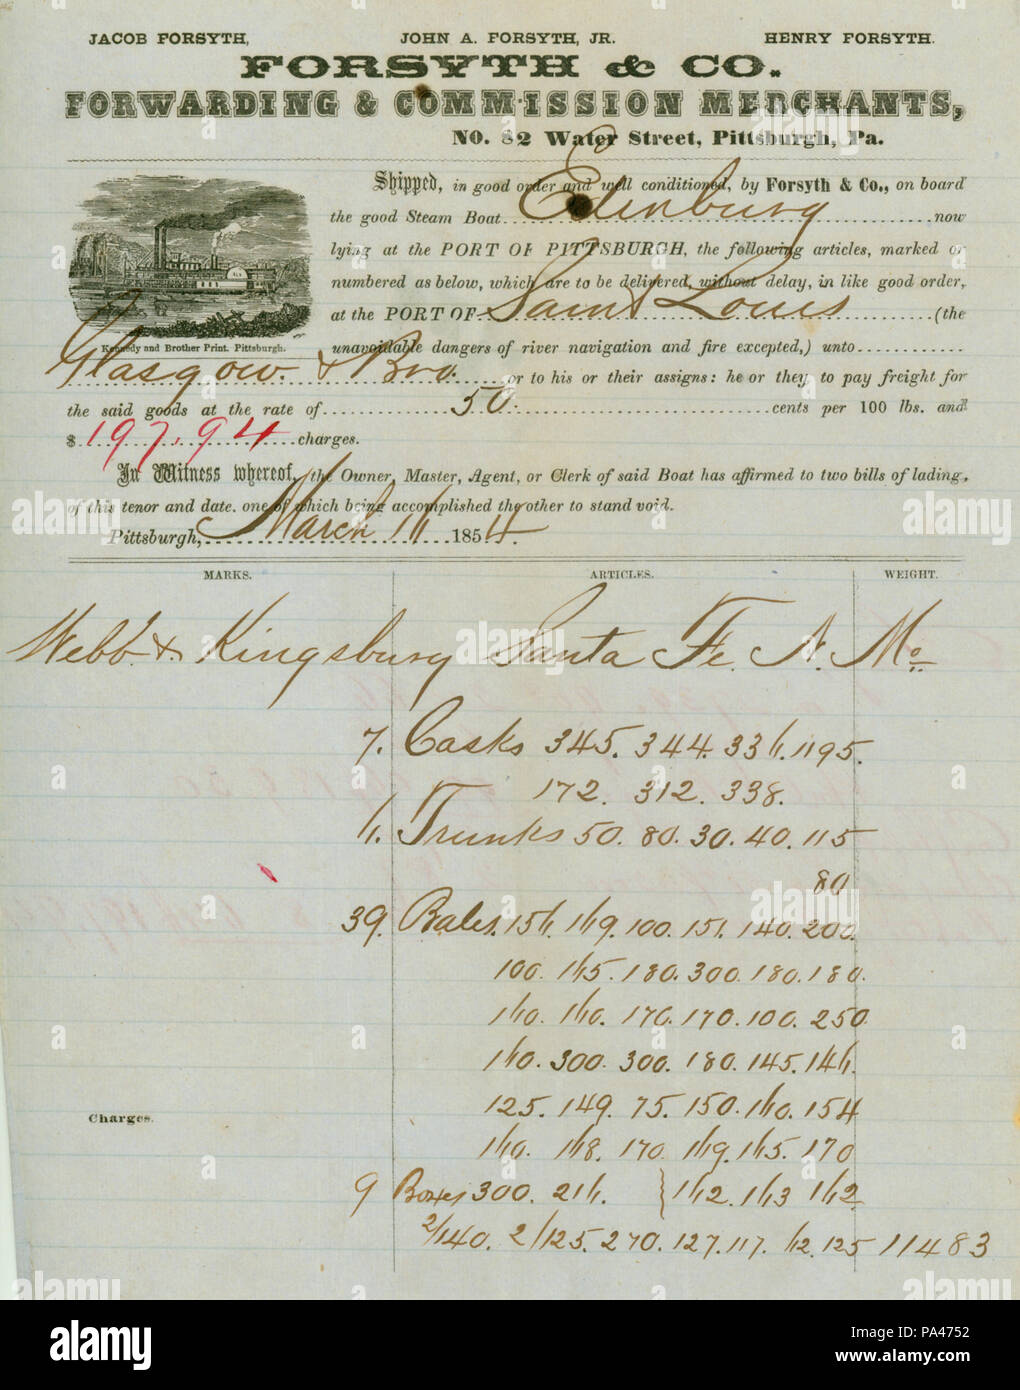 JACOB FORSYTH, JOHN A. FORSYTH, JR. HENRY FORSYTH.
FORSYTH & CO.
FORWARDING & COMMISSION MERCHANTS,
NO. 82 Water Street, Pittsburgh, Pa.
Shipped, in good order and well conditioned, by Forsyth & Co., on board
the good Steam Boat Edinburg now
lying at the PORT OF PITTSBURGH, the following articles, marked or
numbered as below, which are to be delivered, without delay, in like good order,
at the PORT OF Saint Louis (the
Kennedy and Brother Print. Pittsburgh.
unavoidable dangers of river navigation and fire excepted,) unto
Glasgow & Bro. or to his or their assigns: he or they to pay freight for
the said goods at the rate of 50 cents per 100 lbs. and
$197.94 charges.
In Witness whereof, the Owner, Master, Agent, or Clerk of said Boat has affirmed to two bills of lading,
of this tenor and date. one of which being accomplished the other to stand void.
Pittsburgh, March 16 1854.
MARKS. ARTICLES. WEIGHT.
Webb & Kingsbury Santa Fe. N. Mo
7. Casks 345. 344. 336. 1195.
172. 312. 338.
6. Trunks 50. 80. 30. 40. 115
80
39. Bales. 156. 169. 100. 151. 140. 200.
100. 165. 180. 300. 180. 180.
160. 160. 170. 170. 100. 250
160. 300. 300. 180. 145. 146.
125. 149. 75. 150. 160. 154
Charges.
160. 168. 170. 169. 165. 170
9 Boxes 300. 216. } 162. 163 162
2/140. 2/125. 270. 127. 117. 62. 125 11483
alamy
alamy
Image ID: PA4752
www.alamy.com